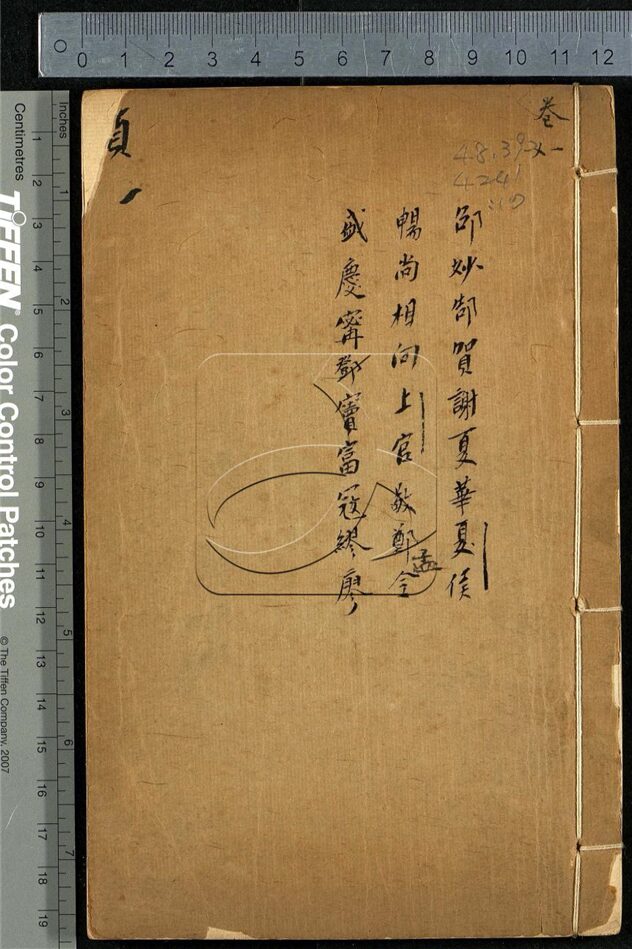 卷
48.39
4241
:10
邵妙郜賀謝夏華夏侯
暢尚相向上官敬鄭孟令
盛慶甯鄧竇富冠繆廖
貞
0 1 2 3 4 5 6 7 8 9 10 11 12
Inches
Centimetres
1 2 3 4 5 6 7
1 2 3 4 5 6 7 8 9 10 11 12 13 14 15 16 17 18 19
TIFFEN® Color Control Patches
© The Tiffen Company, 2007